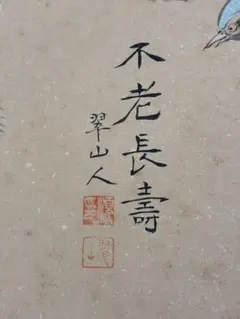 不老長壽
翠山人